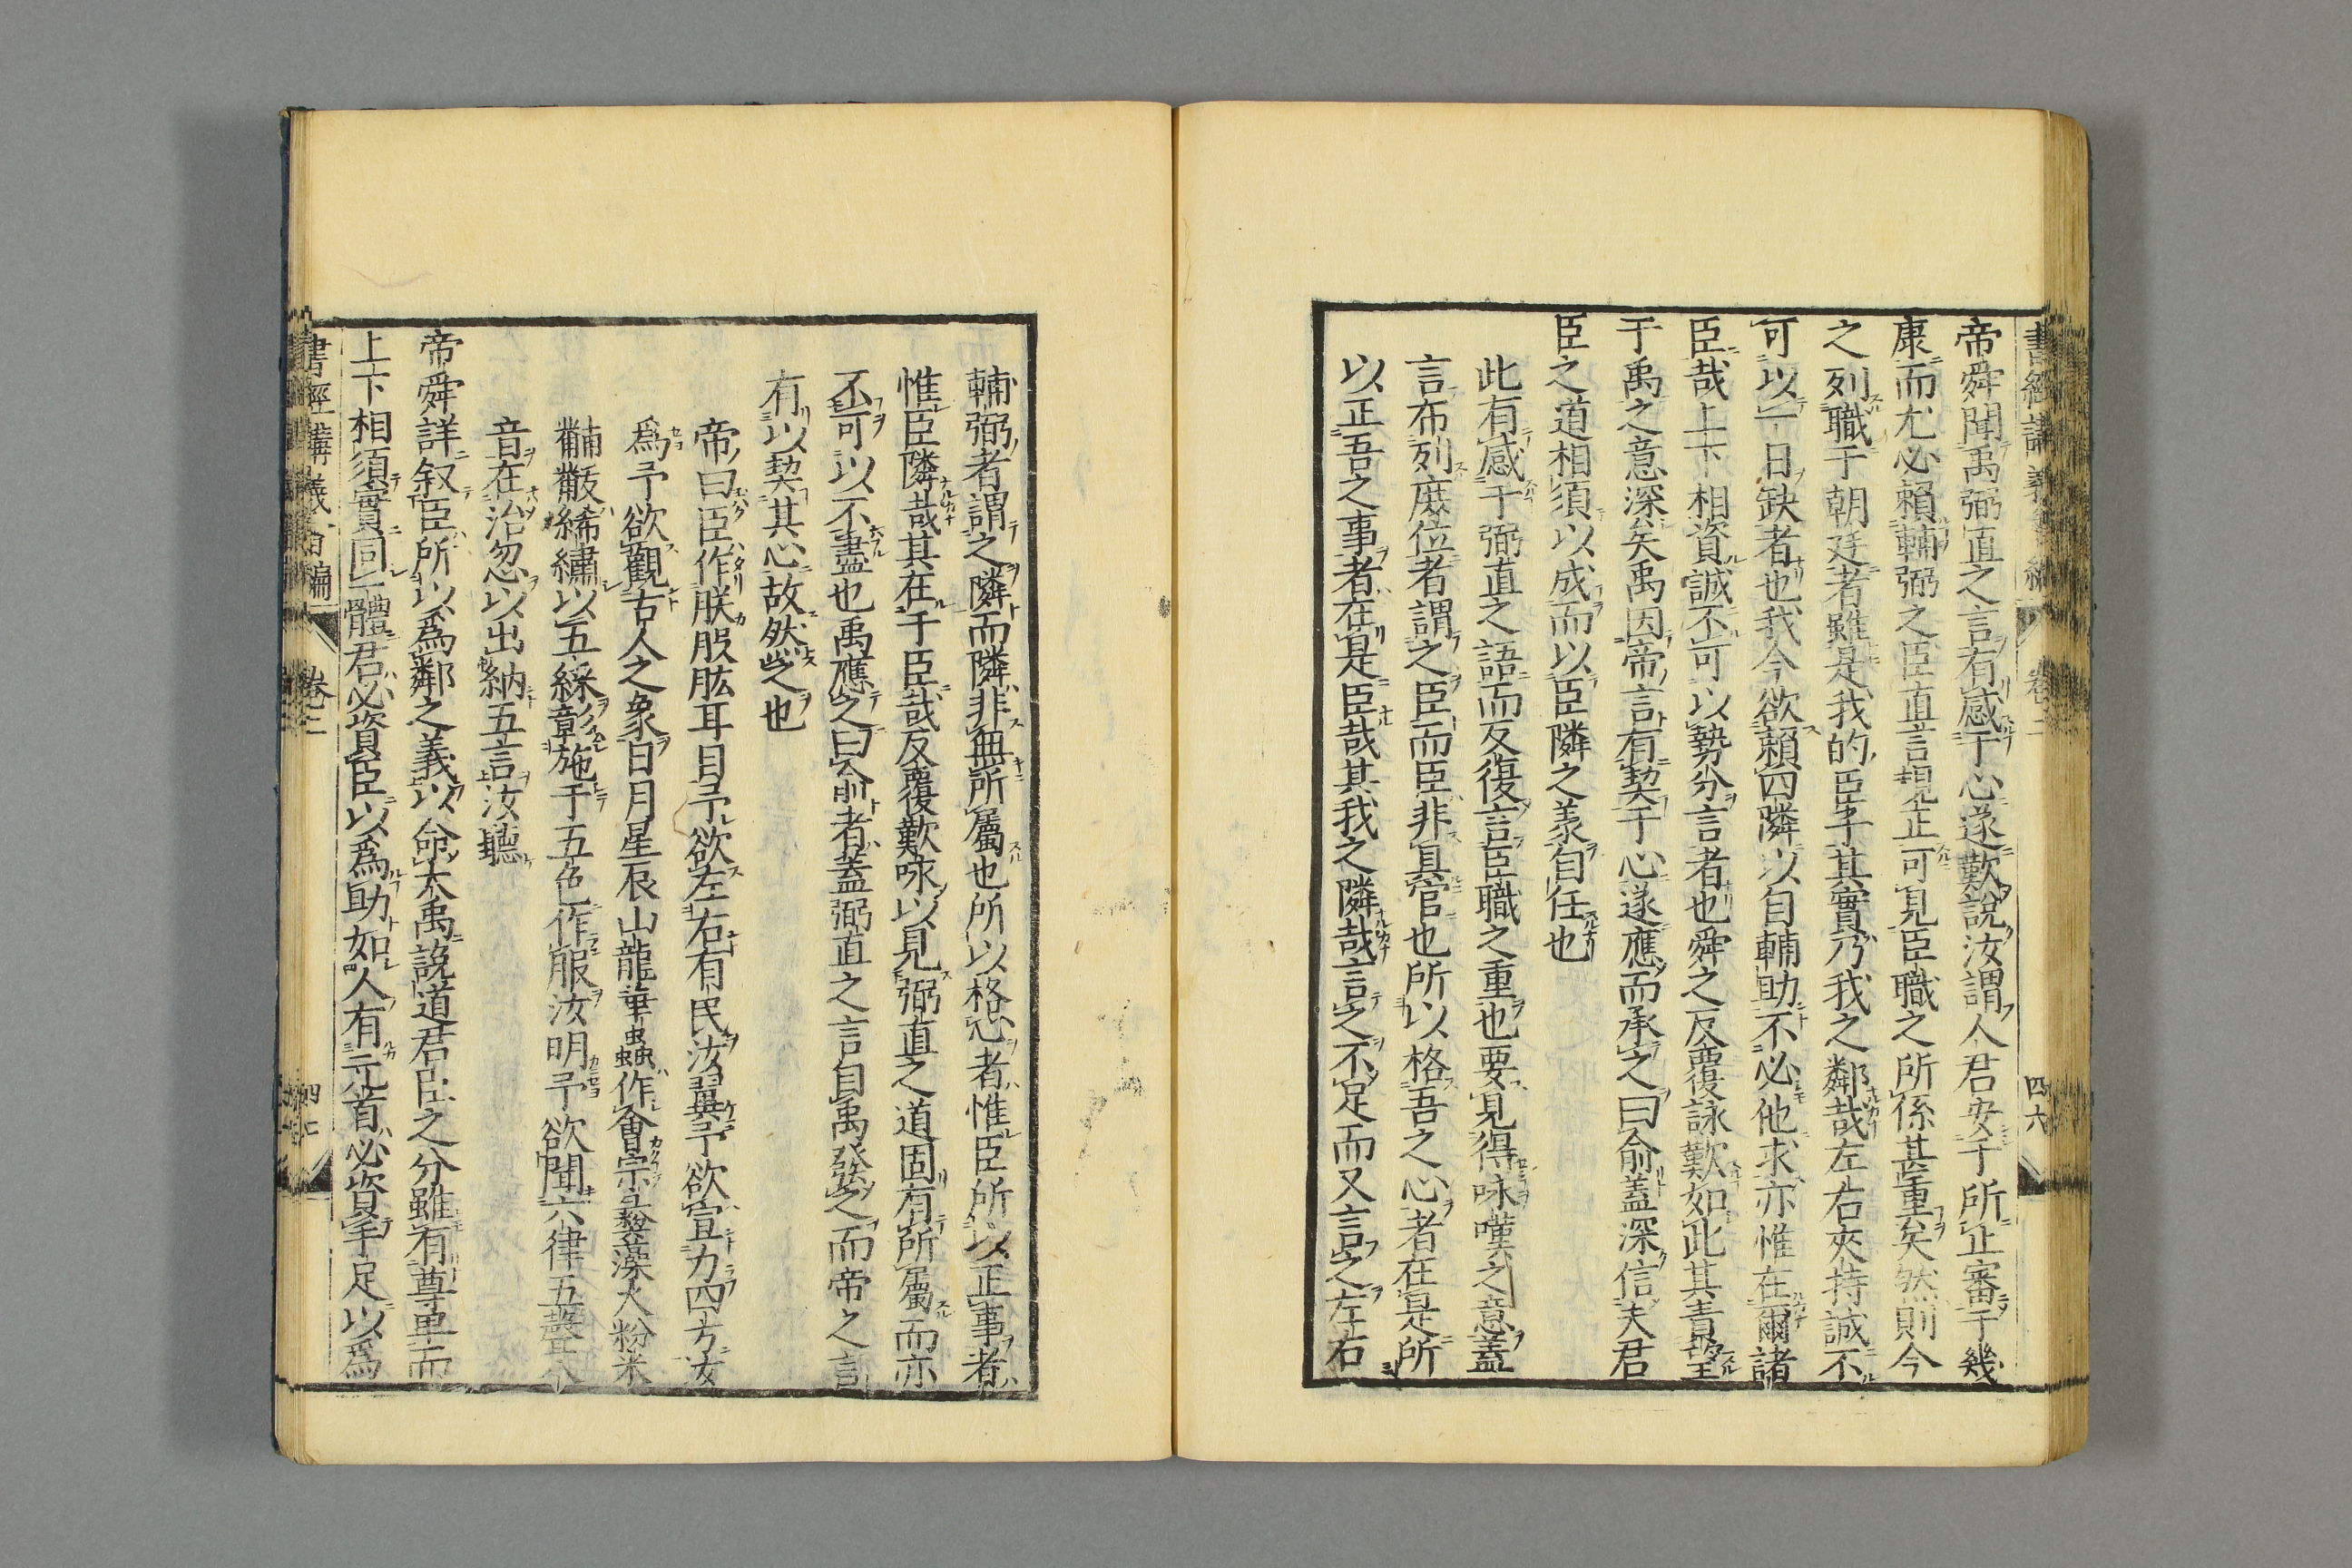 帝舜聞禹弼直之言有感于心遂歎說汝謂人君安于所止審于幾
康而尤必賴輔弼之臣直言規正可見臣職之所係甚重矣然則今
之列職于朝廷者雖是我的臣子其實乃我之鄰哉左右夾持誠不
可以一日缺者也我今欲賴四隣以自輔助不必他求亦惟在爾諸
臣哉上下相資誠不可以勢分言者也舜之反覆詠歎如此其責望
于禹之意深矣禹因帝言有契于心遂應而承之曰俞蓋深信夫君
臣之道相須以成而以臣隣之義自任也
此有感于弼直之語而反復言臣職之重也要見得咏嘆之意蓋
言布列庶位者謂之臣而臣非具官也所以格吾之心者在是所
以正吾之事者在是臣哉其我之隣哉言之不足而又言之左右
輔弼者謂之隣而隣非無所屬也所以格心者惟臣所以正事者
惟臣隣哉其在于臣哉反覆歎咏以見弼直之道固有所屬而亦
不可以不盡也禹應之曰俞者蓋弼直之言自禹發之而帝之言
有以契其心故然之也
帝曰臣作朕股肱耳目予欲左右有民汝翼予欲宣力四方汝
爲予欲觀古人之象日月星辰山龍華蟲作會宗彝藻火粉米
黼黻絺繡以五綵彰施于五色作服汝明予欲聞六律五聲八
音在治忽以出納五言汝聽
帝舜詳叙臣所以爲鄰之義以命大禹說道君臣之分雖有尊卑而
上下相須實同一體君必資臣以爲助如人有元首必資手足以爲
書經講義會編
卷二
四七
卷二
四六